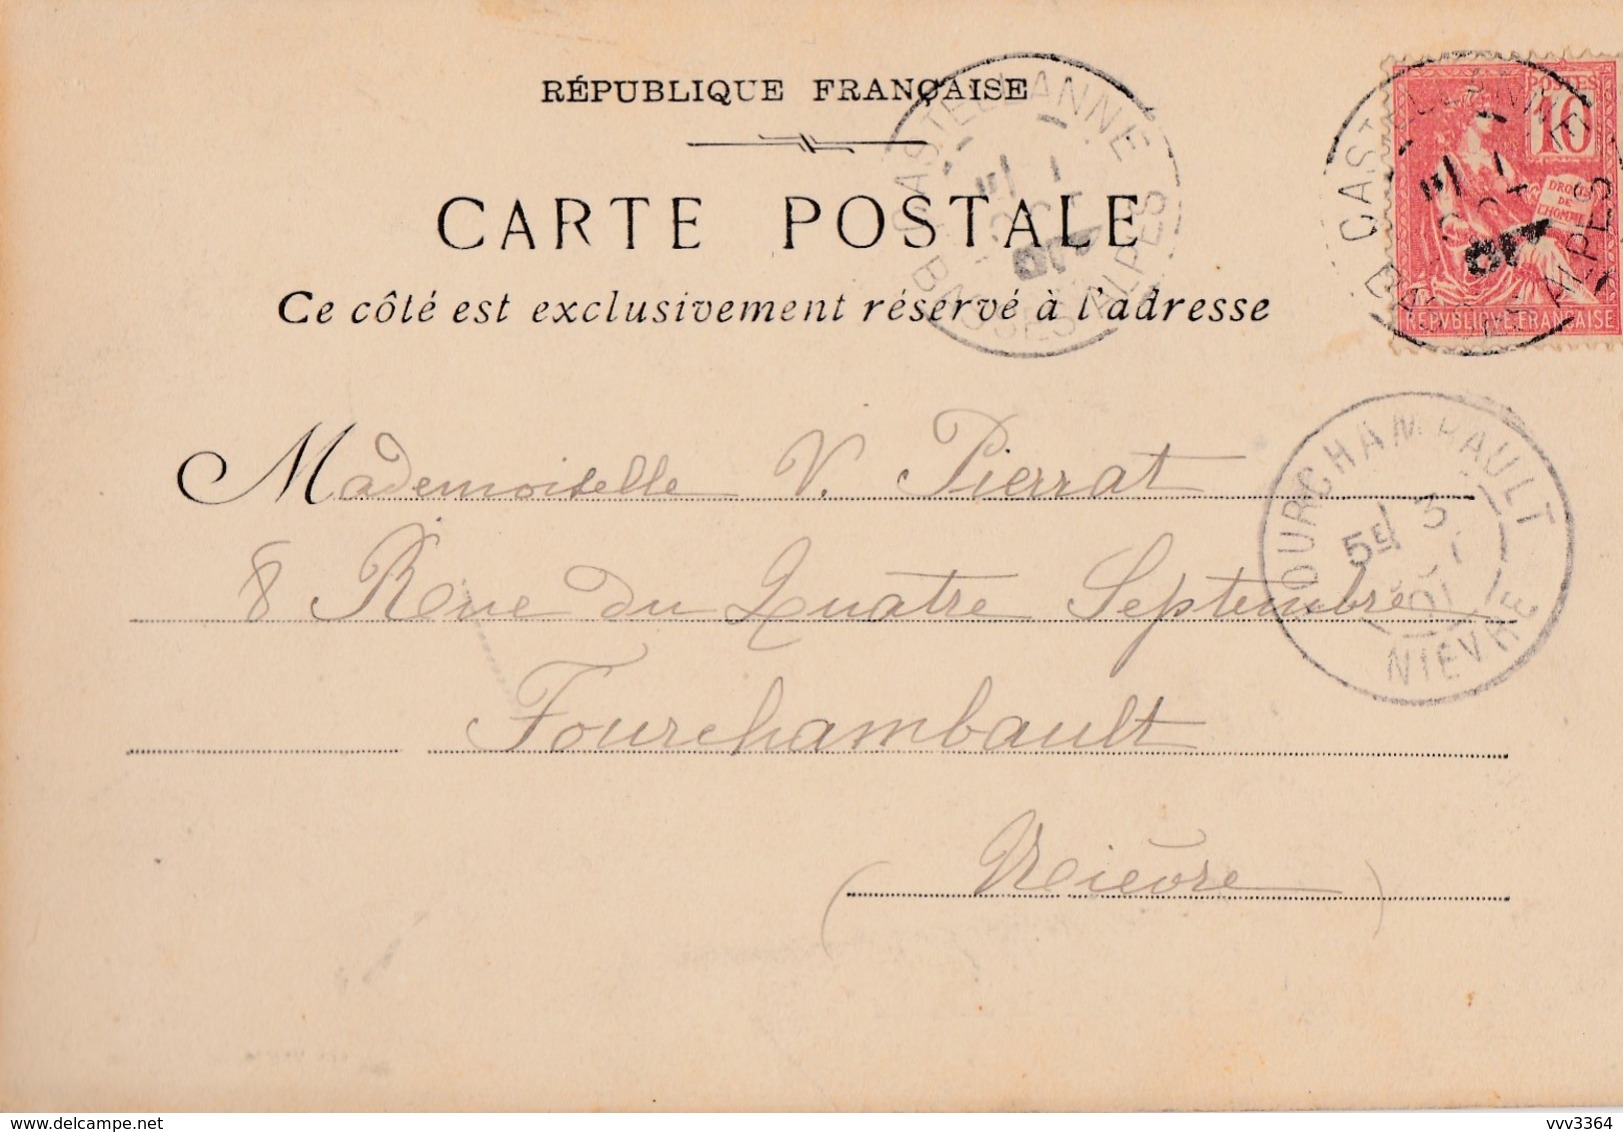 RÉPUBLIQUE FRANÇAISE
CARTE POSTALE
Ce côté est exclusivement réservé à l'adresse
CASTELLANNE
BASSES ALPES
1
OCT
01
CASTELLANNE
BASSES ALPES
1
01
POSTES
10
DROITS
DE
L'HOMME
REPVBLIQVE FRANÇAISE
Mademoiselle V. Pierrat
8 Rue du Quatre Septembre
Fourchambault
(Nièvre)
FOURCHAMBAULT
5E 3
OCT
01
NIEVRE
delcampe.net
vvv3364